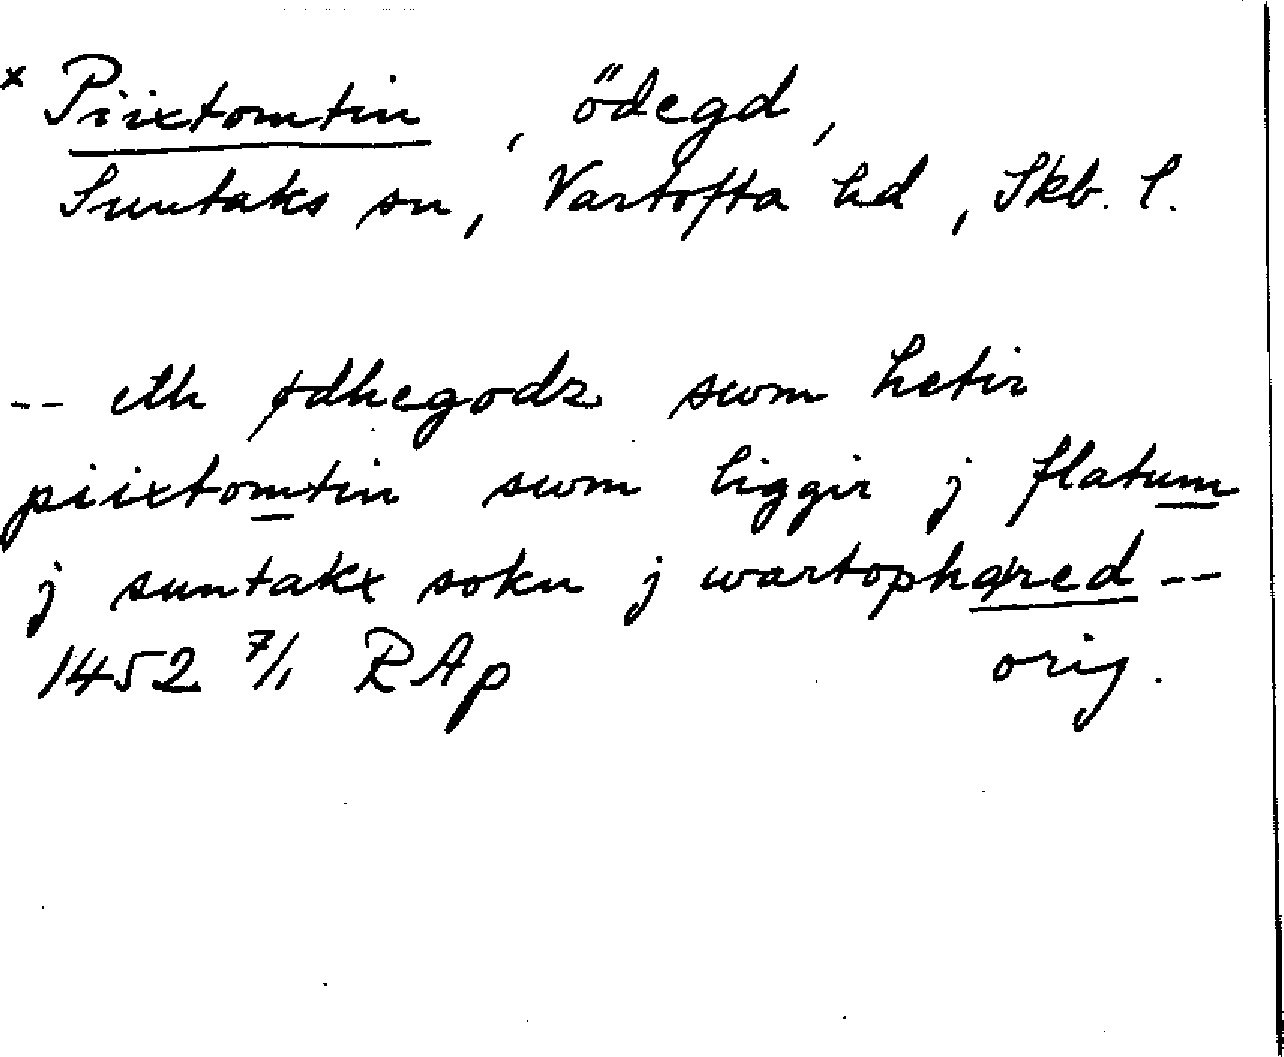 × Piixtomtin, ödegd,
Suntaks sn, Vartofta hd, Skb. l.
-- eth ødhegodz swm hetir
piixtomtin swm liggir j flatum
j suntakx sokn j wartophæred --
1452 7/1 RAp orig.